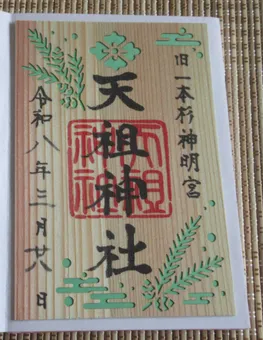 旧一本杉神明宮
天祖神社
令和八年三月廿八日
天祖神社